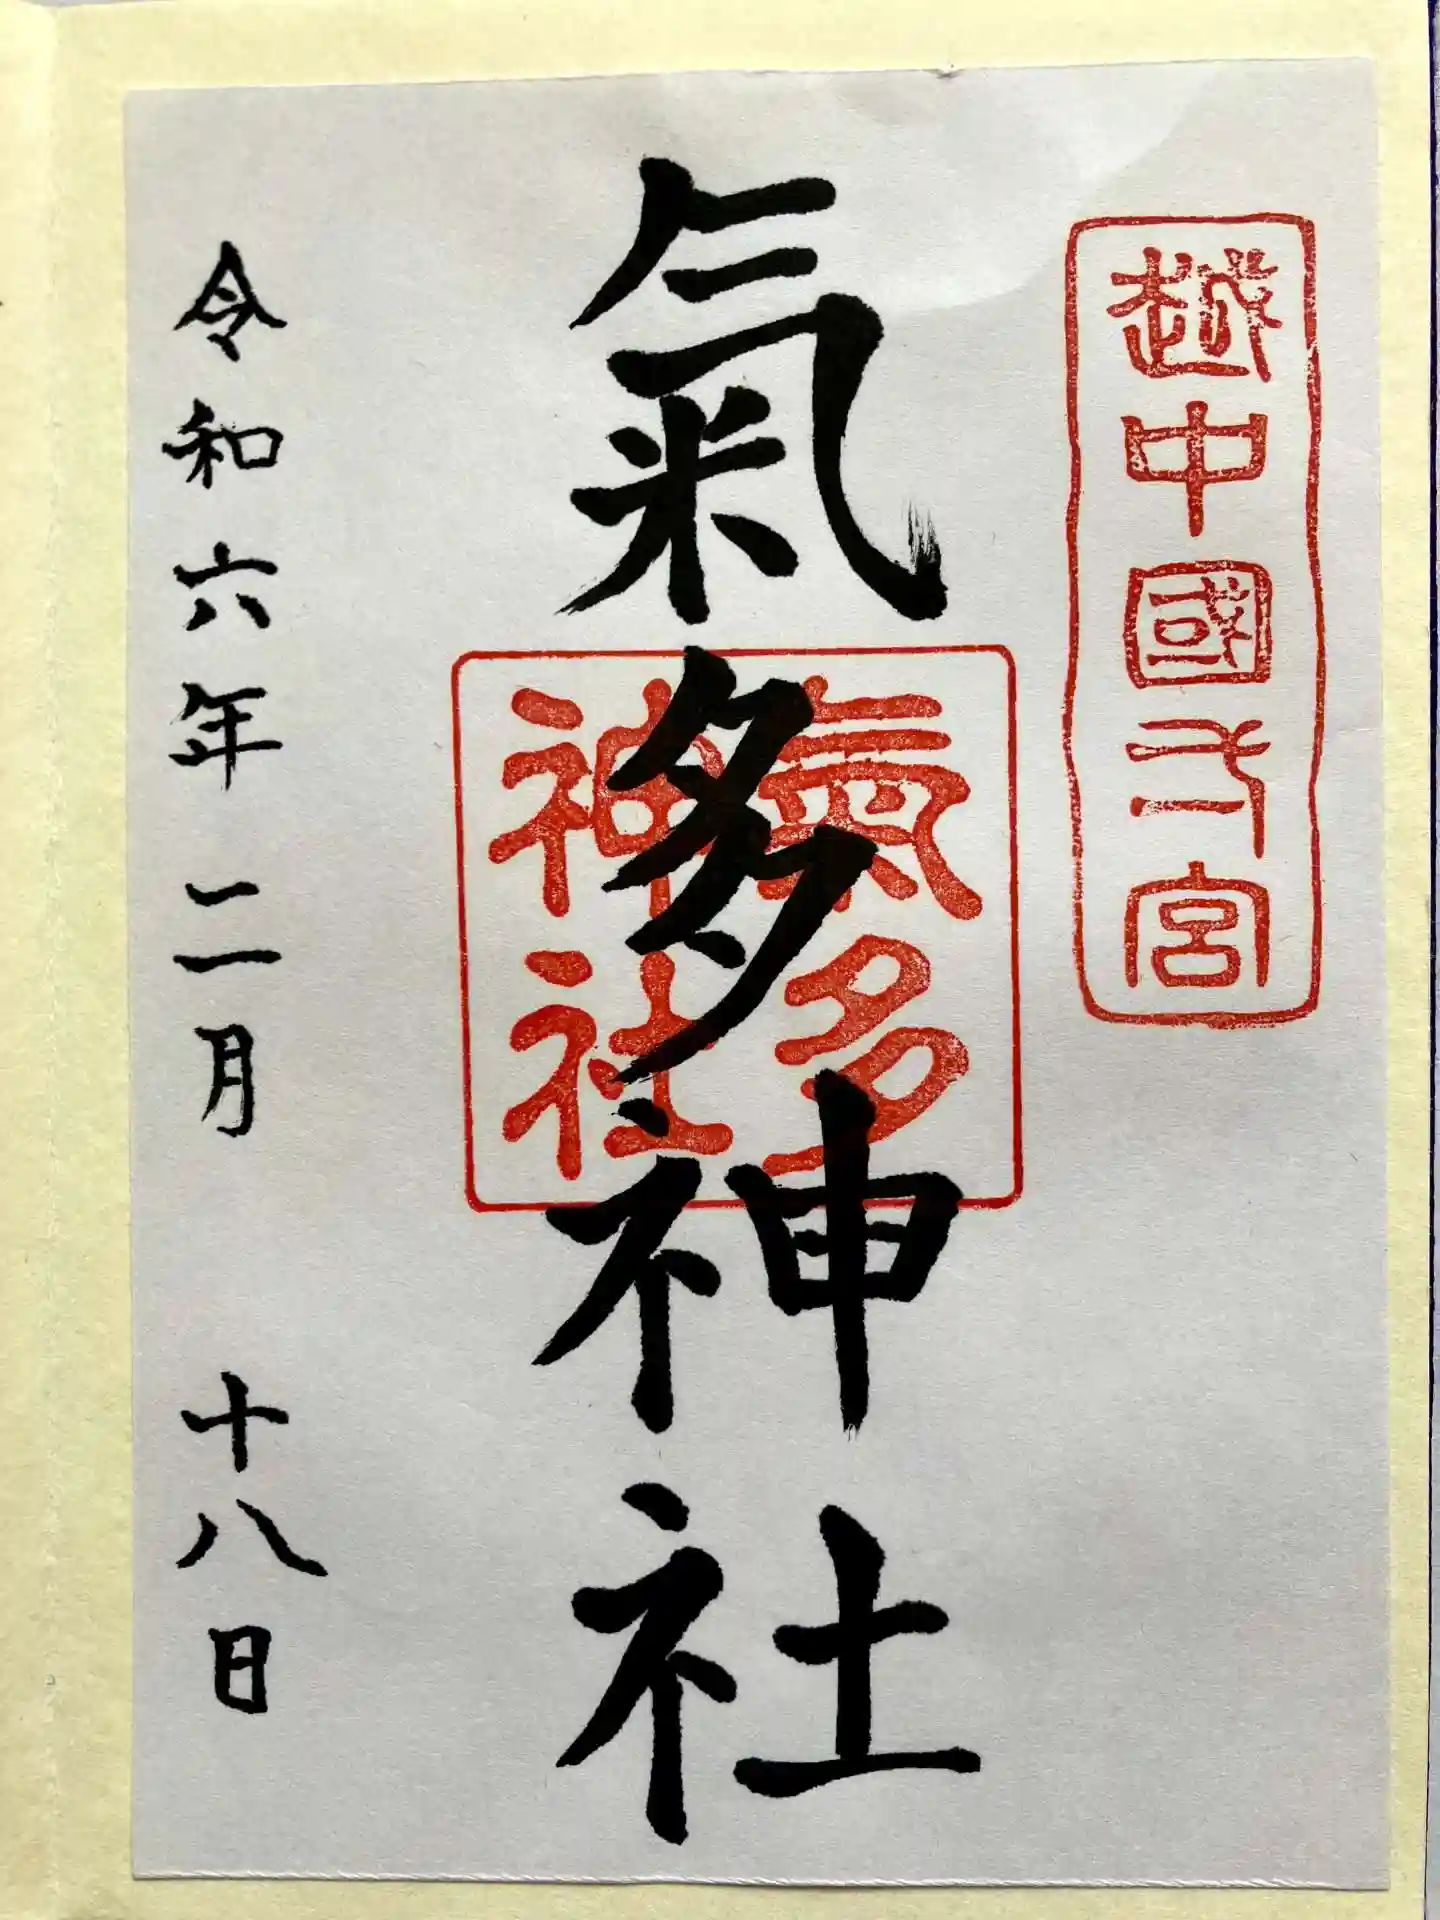 越中國一宮
氣多神社
氣多
神社
令和六年二月十八日